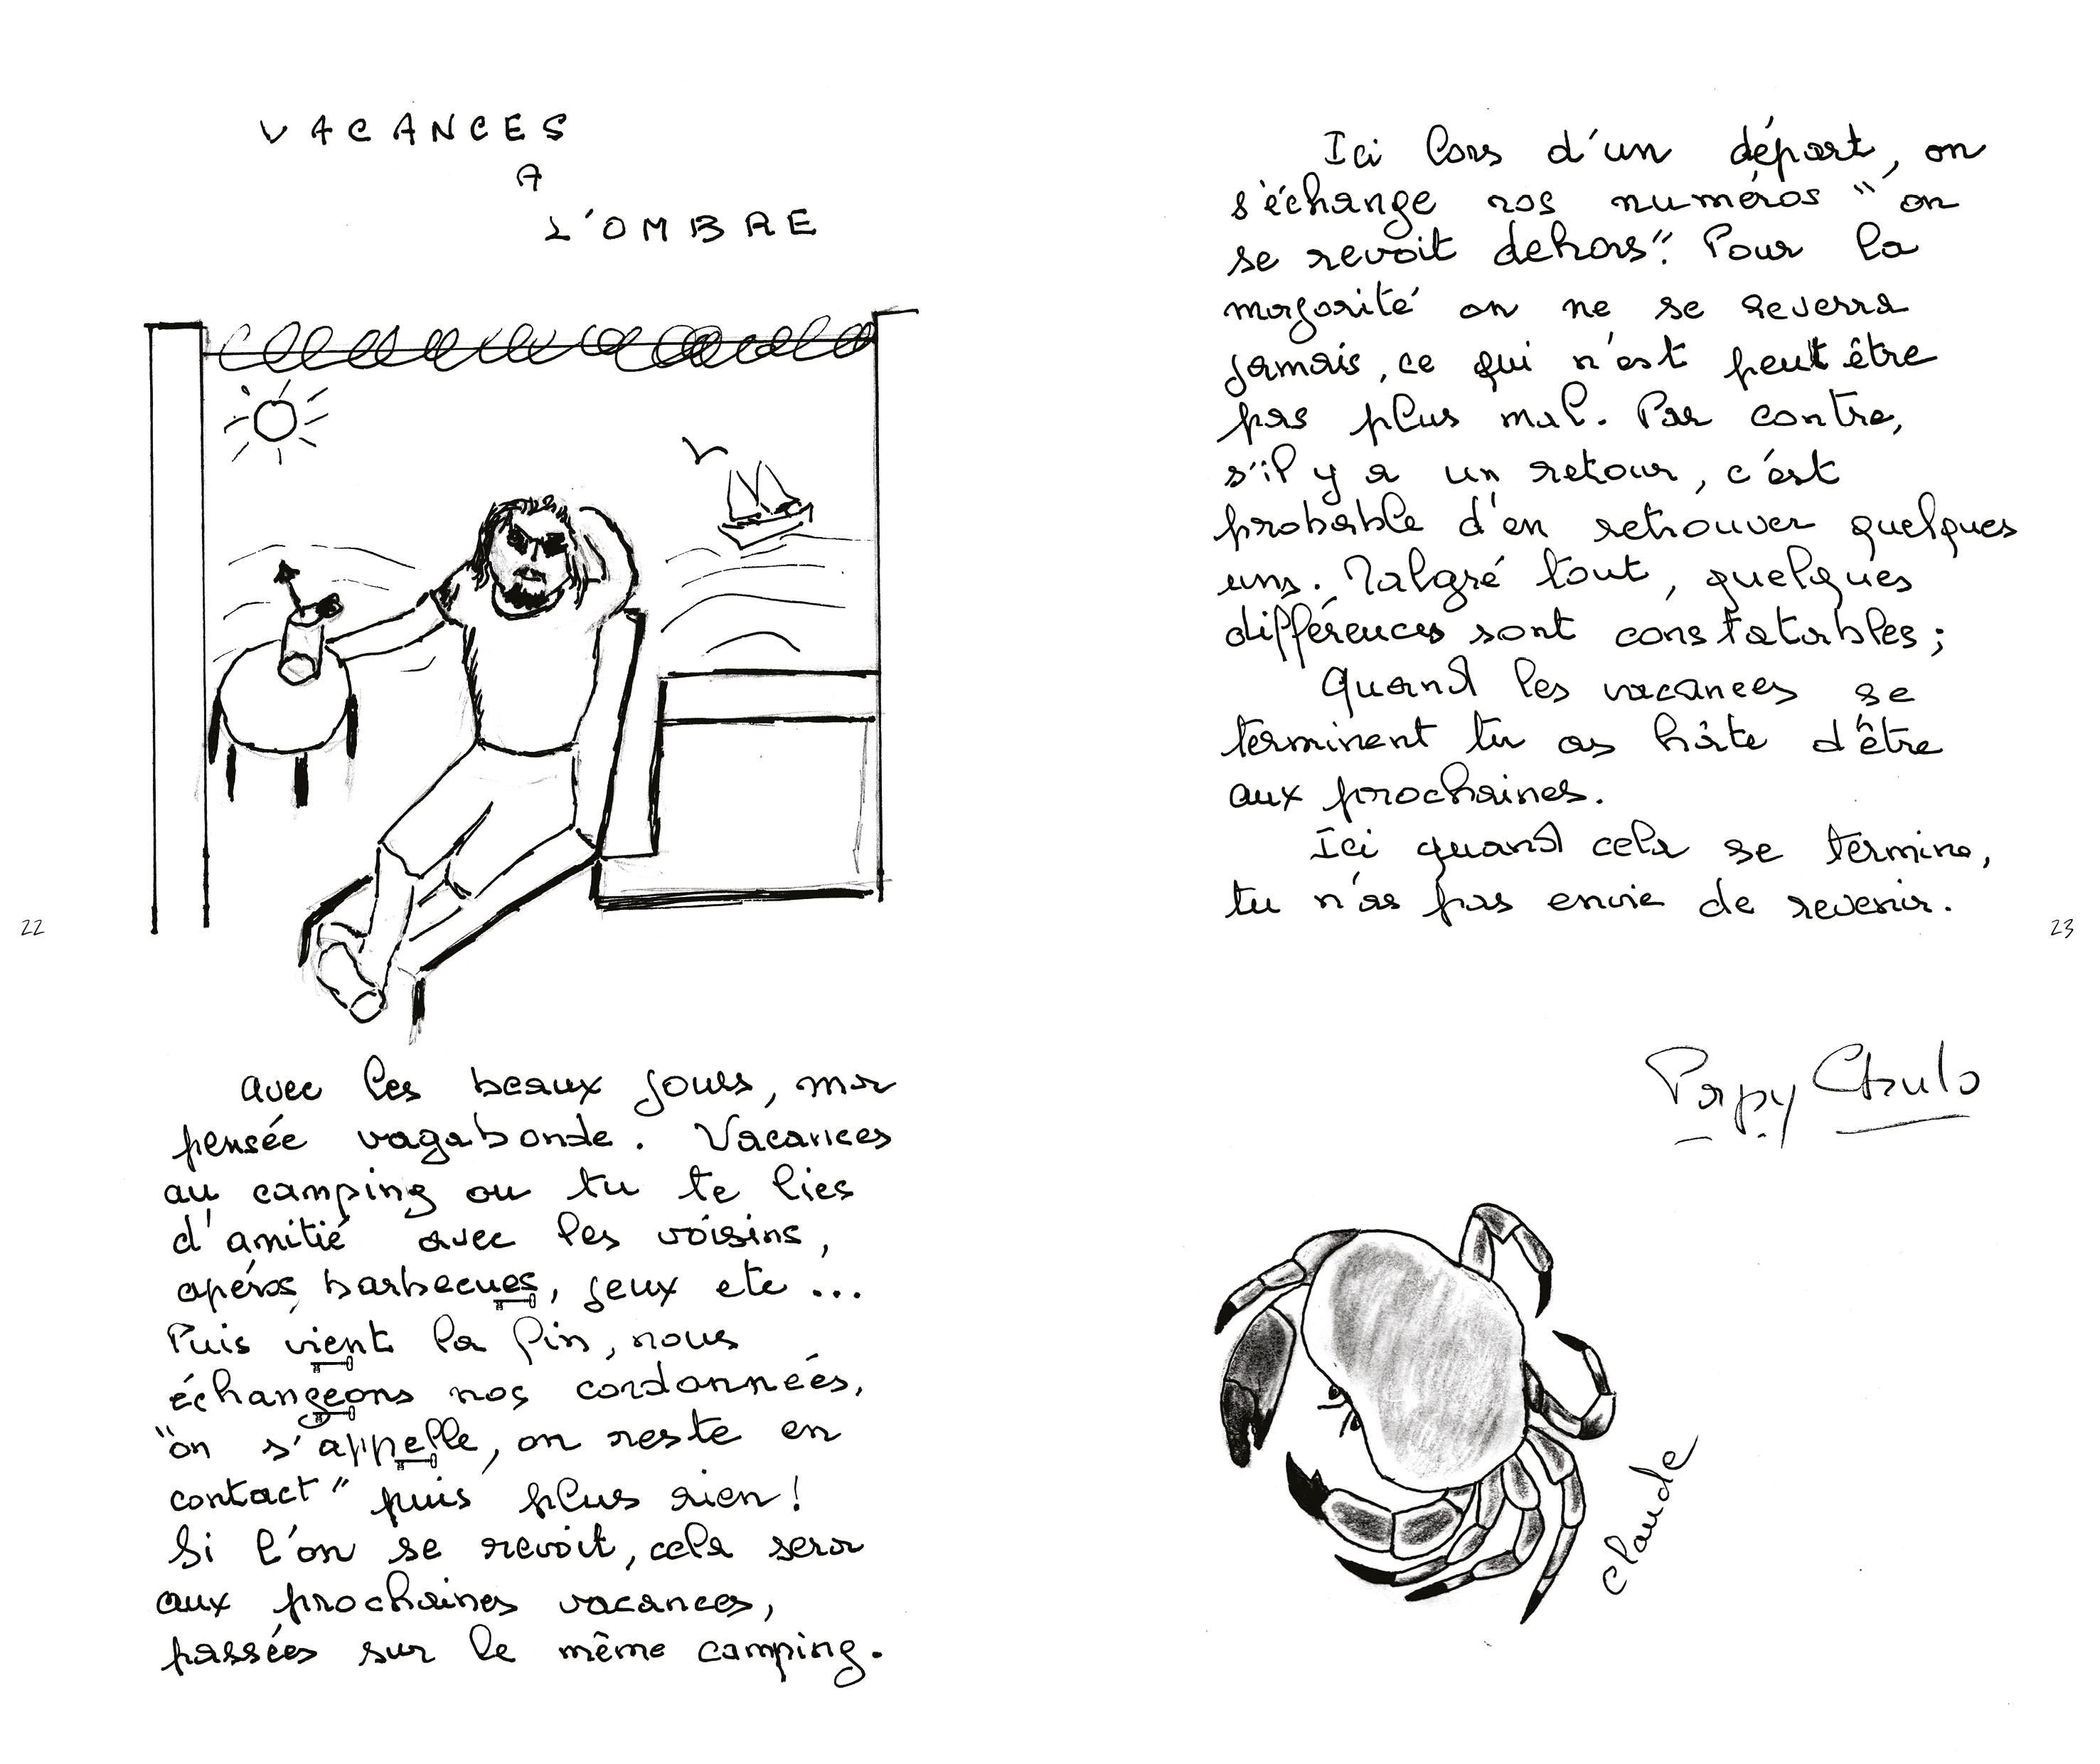 VACANCES
A
L'OMBRE
avec les beaux jours, ma
pensée vagabonde. Vacances
au camping ou tu te lies
d'amitié avec les voisins,
apéros, barbecues, jeux etc ...
Puis vient la fin, nous
échangeons nos cordonnées,
"on s'appelle, on reste en
contact" puis plus rien!
Si l'on se revoit, cela sera
aux prochaines vacances,
passées sur le même camping.
22
Ici lors d'un départ, on
s'échange nos numéros "on
se revoit dehors". Pour la
majorité on ne se reverra
jamais, ce qui n'est peut être
pas plus mal. Par contre,
s'il y a un retour, c'est
probable d'en retrouver quelques
uns. Malgré tout, quelques
différences sont constatables;
Quand les vacances se
terminent tu as hâte d'être
aux prochaines.
Ici quand cela se termine,
tu n'as pas envie de revenir.
23
Papy Chulo
Claude